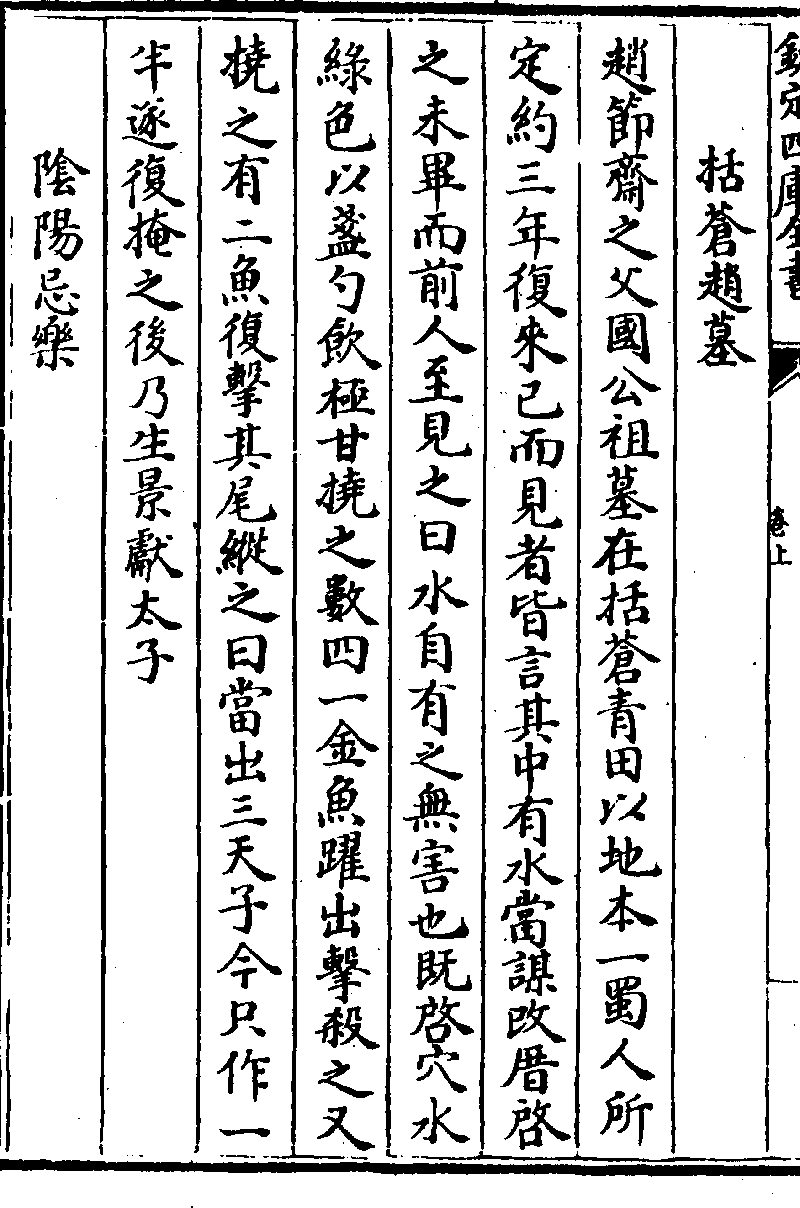 欽定四庫全書
卷上
括蒼趙墓
趙節齋之父國公祖墓在括蒼青田以地本一蜀人所
定約三年復來已而見者皆言其中有水當謀改厝啓
之未畢而前人至見之曰水自有之無害也既啓穴水
綠色以盞勺飲極甘撓之數四一金魚躍出擊殺之又
撓之有二魚復擊其尾縱之曰當出三天子今只作一
半遂復掩之後乃生景獻太子
陰陽忌樂